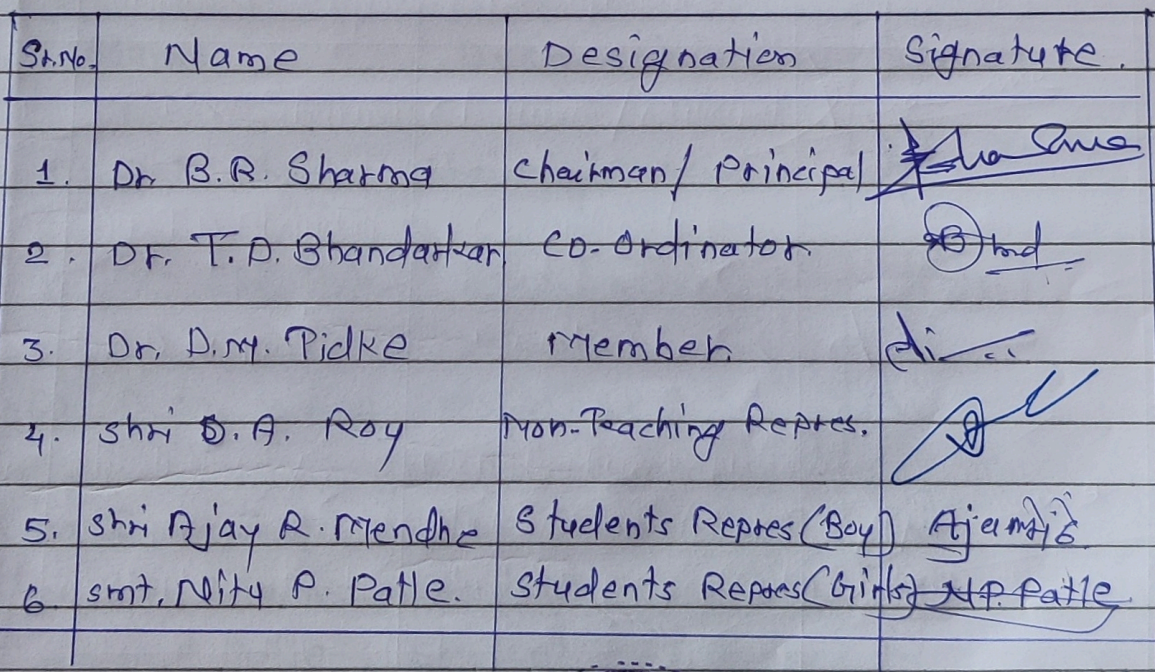 Sr.No. Name Designation Signature.
1. Dr. B.R. Sharma Chairman/ Principal
2. Dr. T.D. Bhandarkar Co-Ordinator.
3. Dr. D.M. Pidke Member.
4. Shri D. A. Roy Non-Teaching Repres.
5. Shri Ajay R. Mendhe Students Repres (Boy)
6. Smt. Nitu P. Patle. Students Repres (Girls) N.P. Patle